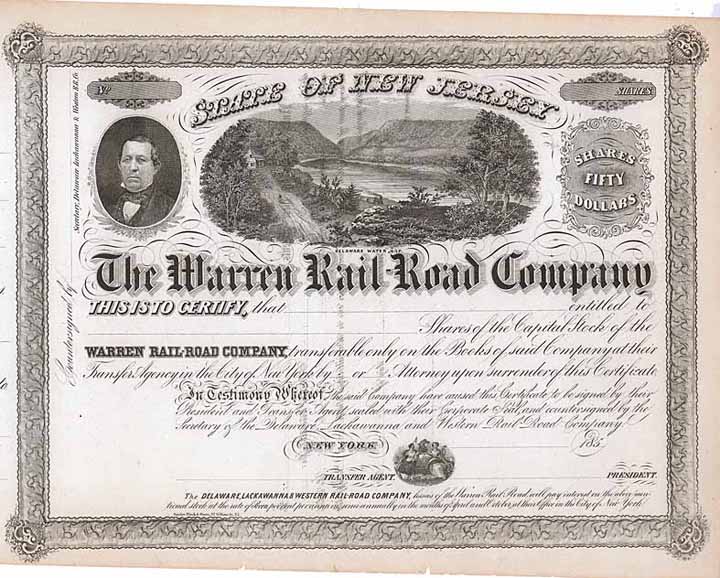 STATE OF NEW JERSEY
Nº
SHARES
SHARES
FIFTY
DOLLARS
DELAWARE WATER GAP
The Warren Rail-Road Company
THIS IS TO CERTIFY, that entitled to
Shares of the Capital Stock of the
WARREN RAIL-ROAD COMPANY, transferable only on the Books of said Company at their
Transfer Agency in the City of New York by or Attorney upon surrender of this Certificate
In Testimony Whereof, the said Company have caused this Certificate to be signed by their
President and Transfer Agent, sealed with their Corporate Seal, and countersigned by the
Secretary of the Delaware Lackawanna and Western Rail-Road Company.
NEW YORK 185
TRANSFER AGENT. PRESIDENT.
The DELAWARE, LACKAWANNA & WESTERN RAIL-ROAD COMPANY, lessees of the Warren Rail Road, will pay interest on the above men-
tioned stock at the rate of seven per cent per annum, semi annually in the months of April and October, at their Office in the City of New York.
Countersigned by
Secretary, Delaware Lackawanna & Western R.R. Co.